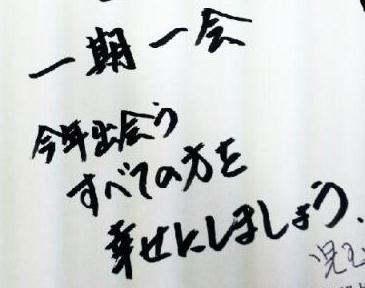 一期一会
今年出会う
すべての方を
幸せにしましょう.
児玉